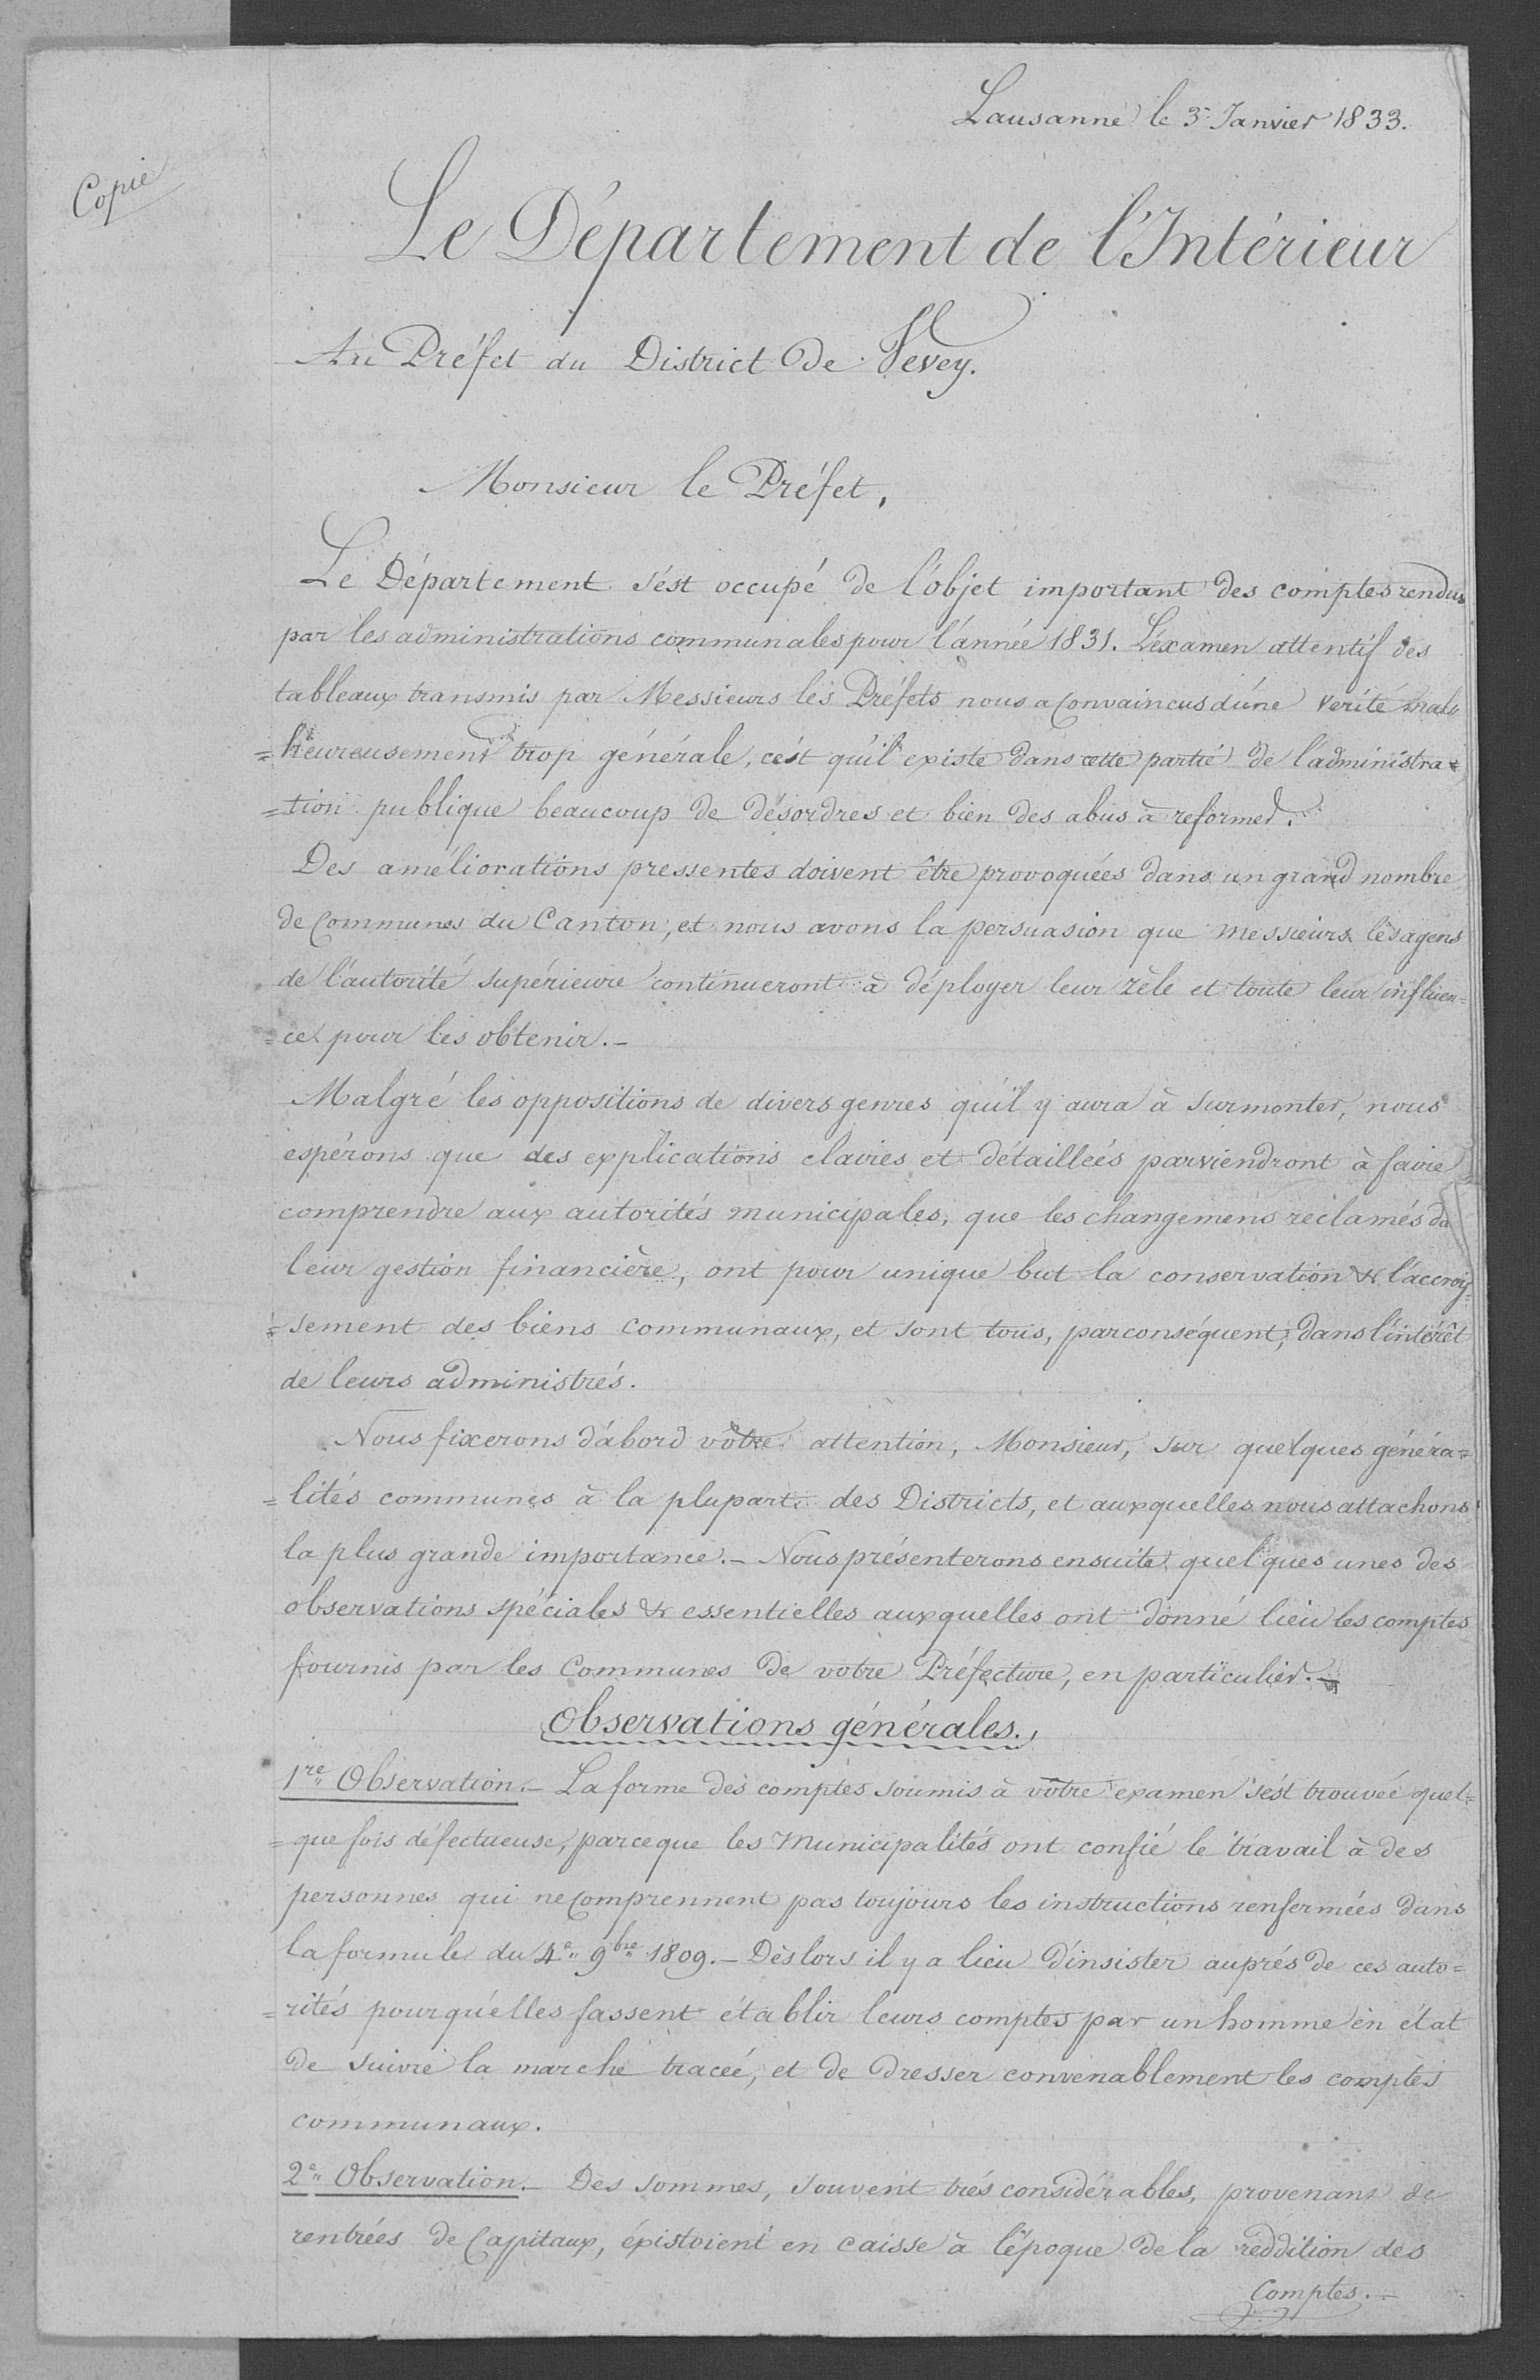 Lausanne le 3 Janvier 1833.
Copie
Le Département de l'Intérieur
Au Préfet du District de Vevey.
Monsieur le Préfet,
Le Département s'est occupé de l'objet important des comptes rendus
par les administrations communales pour l'année 1831. L'examen attentif des
tableaux transmis par Messieurs les Préfets nous a convaincus d'une verité mal
=heureusement trop générale, c'est qu'il existe dans cette partie de l'administra=
=tion publique beaucoup de désordres et bien des abus à reformer.
Des améliorations pressentes doivent être provoquées dans un grand nombre
de Communes du Canton, et nous avons la persuasion que messieurs les agens
de l'autorité supérieure continueront à déployer leur zèle et toute leur influen=
=ce pour les obtenir.-
Malgré les oppositions de divers genres qu'il y aura à surmonter, nous
espérons que des explications claires et détaillées parviendront à faire
comprendre aux autorités municipales, que les changemens réclamés da
leur gestion financière, ont pour unique but la conservation & l'accrois=
=sement des biens communaux, et sont tous, parconséquent, dans l'intérêt
de leurs administrés.
Nous fixerons d'abord vôtre attention, Monsieur, sur quelques généra=
=lités communes à la plupart des Districts, et auxquelles nous attachons
la plus grande importance.- Nous présenterons ensuite quelques unes des
observations spéciales & essentielles auxquelles ont donné lieu les comptes
fournis par les Communes de votre Préfecture, en particulier.-
Observations générales.
1re Observation.- La forme des comptes soumis à vôtre examen s'est trouvée quel=
=que fois défectueuse, parceque les Municipalités ont confié le travail à des
personnes qui ne comprennent pas toujours les instructions renfermées dans
la formule du 4e 9bre 1809.- Dès lors il y a lieu d'insister auprés de ces auto=
=rités pour qu'elles fassent établir leurs comptes par un homme en état
de suivre la marche tracée, et de dresser convenablement les comptes
communaux.
2e Observation.- Des sommes, souvent trés considérables, provenant de
rentrées de Capitaux, éxistoient en caisse à l'époque de la réddition des
Comptes.-